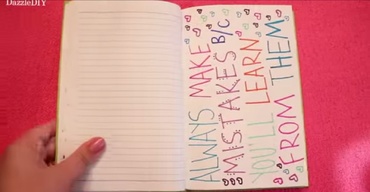 DazzleDIY
ALWAYS MAKE
MISTAKES B/C
YOU'LL LEARN
FROM THEM